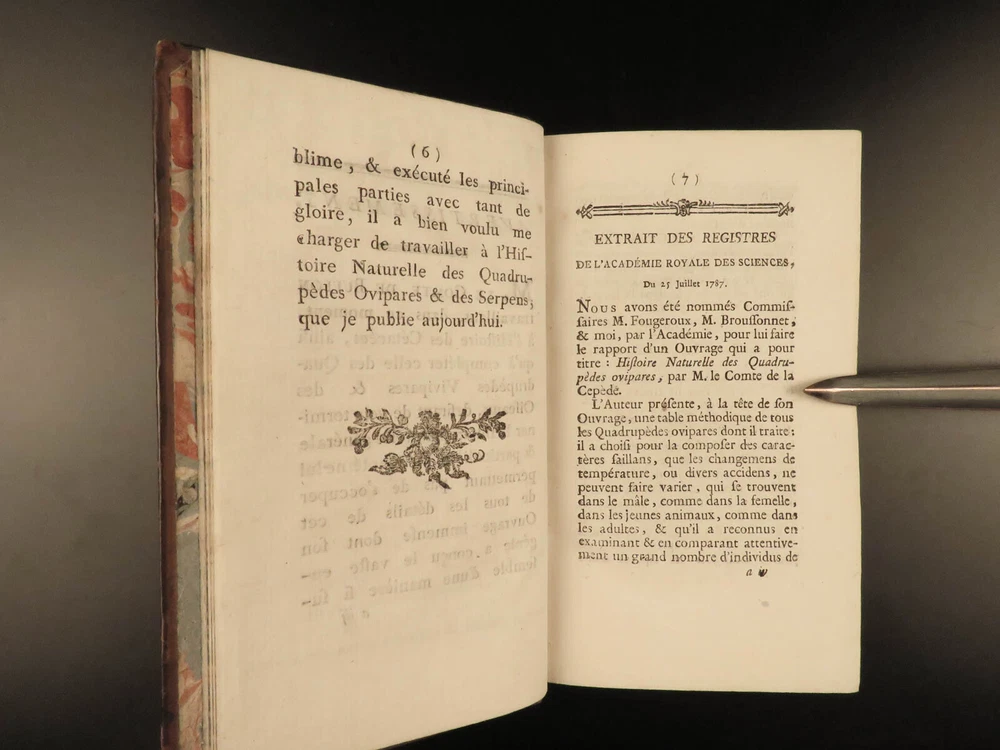 (6)
blime, & exécuté les princi-
pales parties avec tant de
gloire, il a bien voulu me
charger de travailler à l'Hiſ-
toire Naturelle des Quadru-
pèdes Ovipares & des Serpens,
que je publie aujourd'hui.
(7)
EXTRAIT DES REGISTRES
DE L'ACADÉMIE ROYALE DES SCIENCES,
Du 25 Juillet 1787.
NOUS avons été nommés Commiſ-
ſaires M. Fougeroux, M. Brouſſonnet,
& moi, par l'Académie, pour lui faire
le rapport d'un Ouvrage qui a pour
titre : Hiſtoire Naturelle des Quadru-
pèdes ovipares, par M. le Comte de la
Cepède.
L'Auteur préſente, à la tête de ſon
Ouvrage, une table méthodique de tous
les Quadrupèdes ovipares dont il traite :
il a choiſi pour la compoſer des carac-
tères ſaillans, que les changemens de
température, ou divers accidens, ne
peuvent faire varier, qui ſe trouvent
dans le mâle, comme dans la femelle,
dans les jeunes animaux, comme dans
les adultes, & qu'il a reconnus en
examinant & en comparant attentive-
ment un grand nombre d'individus de
a iv